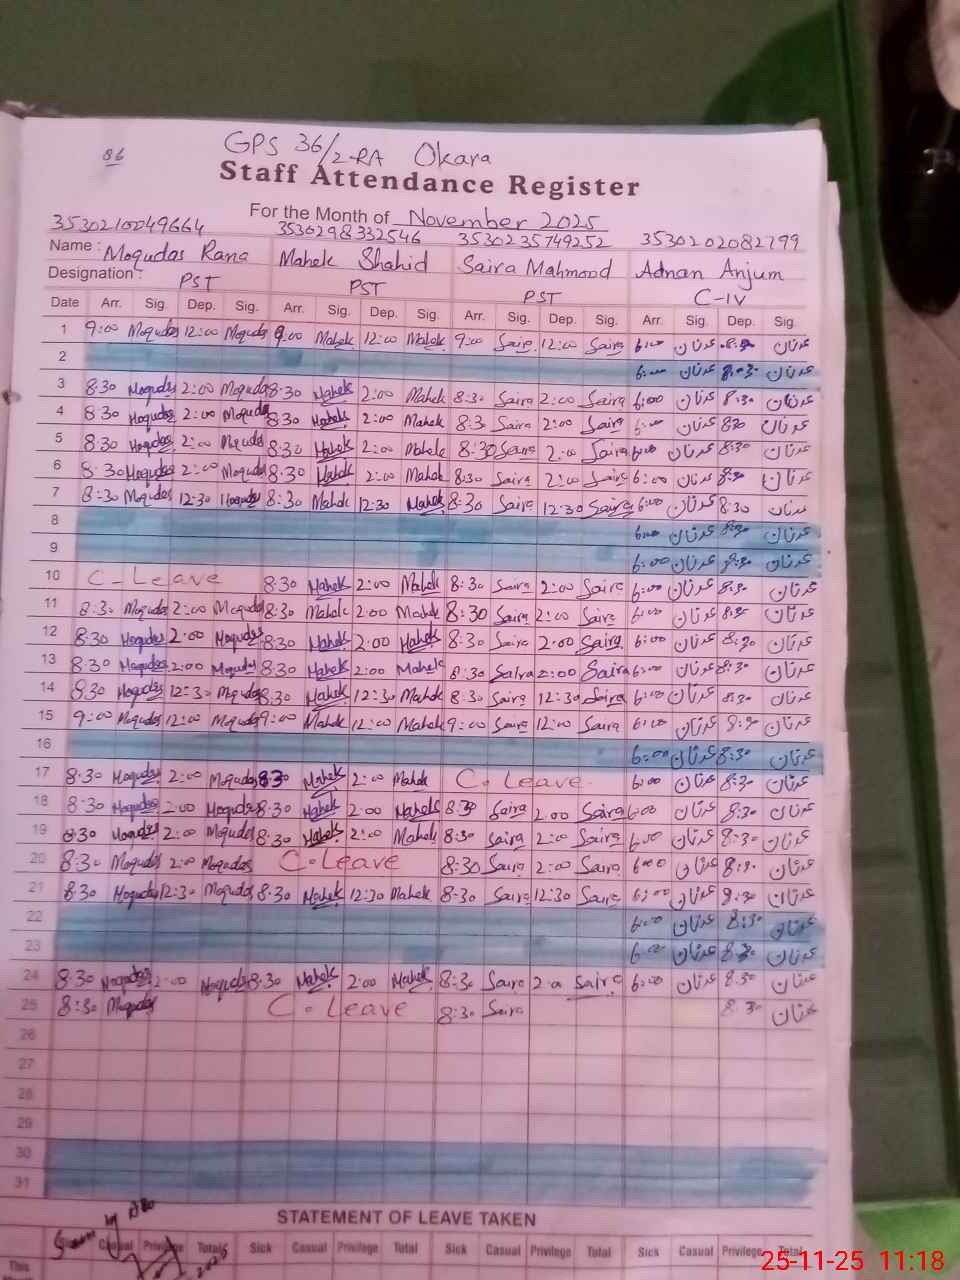 86
GPS 36/2-RA Okara
Staff Attendance Register
For the Month of November 2025
3530210049664 3530298332546 3530235749252 3530202082799
Name : Moqudas Rana Mahek Shahid Saira Mahmood Adnan Anjum
Designation : PST PST PST C-IV
Date Arr. Sig. Dep. Sig. Arr. Sig. Dep. Sig. Arr. Sig. Dep. Sig. Arr. Sig. Dep. Sig.
1 9:00 Moqudas 12:00 Moqudas 9:00 Mahek 12:00 Mahek 9:00 Saira 12:00 Saira 6:00 عدنان 8:30 عدنان
2 6:00 عدنان 8:30 عدنان
3 8:30 Moqudas 2:00 Moqudas 8:30 Mahek 2:00 Mahek 8:30 Saira 2:00 Saira 6:00 عدنان 8:30 عدنان
4 8:30 Moqudas 2:00 Moqudas 8:30 Mahek 2:00 Mahek 8:3 Saira 2:00 Saira 6:00 عدنان 830 عدنان
5 8:30 Moqudas 2:00 Moqudas 8:30 Mahek 2:00 Mahek 8:30 Saira 2:00 Saira 6:00 عدنان 8:30 عدنان
6 8:30 Moqudas 2:00 Moqudas 8:30 Mahek 2:00 Mahek 8:30 Saira 2:00 Saira 6:00 عدنان 8:30 عدنان
7 8:30 Moqudas 12:30 Moqudas 8:30 Mahek 12:30 Mahek 8:30 Saira 12:30 Saira 6:00 عدنان 8:30 عدنان
8 6:00 عدنان 8:30 عدنان
9 6:00 عدنان 8:30 عدنان
10 C-Leave 8:30 Mahek 2:00 Mahek 8:30 Saira 2:00 Saira 6:00 عدنان 8:30 عدنان
11 8:30 Moqudas 2:00 Moqudas 8:30 Mahek 2:00 Mahek 8:30 Saira 2:00 Saira 6:00 عدنان 8:30 عدنان
12 8:30 Moqudas 2:00 Moqudas 8:30 Mahek 2:00 Mahek 8:30 Saira 2:00 Saira 6:00 عدنان 8:30 عدنان
13 8:30 Moqudas 2:00 Moqudas 8:30 Mahek 2:00 Mahek 8:30 Saira 2:00 Saira 6:00 عدنان 8:30 عدنان
14 8:30 Moqudas 12:30 Moqudas 8:30 Mahek 12:30 Mahek 8:30 Saira 12:30 Saira 6:00 عدنان 8:30 عدنان
15 9:00 Moqudas 12:00 Moqudas 9:00 Mahek 12:00 Mahek 9:00 Saira 12:00 Saira 6:00 عدنان 8:30 عدنان
16 6:00 عدنان 8:30 عدنان
17 8:30 Moqudas 2:00 Moqudas 830 Mahek 2:00 Mahek C.Leave 6:00 عدنان 8:30 عدنان
18 8:30 Moqudas 2:00 Moqudas 8:30 Mahek 2:00 Mahek 8:30 Saira 2:00 Saira 6:00 عدنان 8:30 عدنان
19 8:30 Moqudas 2:00 Moqudas 8:30 Mahek 2:00 Mahek 8:30 Saira 2:00 Saira 6:00 عدنان 8:30 عدنان
20 8:30 Moqudas 2:00 Moqudas C-Leave 8:30 Saira 2:00 Saira 6:00 عدنان 8:30 عدنان
21 8:30 Moqudas 12:30 Moqudas 8:30 Mahek 12:30 Mahek 8:30 Saira 12:30 Saira 6:00 عدنان 8:30 عدنان
22 6:00 عدنان 8:30 عدنان
23 6:00 عدنان 8:30 عدنان
24 8:30 Moqudas 2:00 Moqudas 8:30 Mahek 2:00 Mahek 8:30 Saira 2:00 Saira 6:00 عدنان 8:30 عدنان
25 8:30 Moqudas C.Leave 8:30 Saira 8:30 عدنان
26
27
28
29
30
31
STATEMENT OF LEAVE TAKEN
Casual Privilege Total Sick Casual Privilege Total Sick Casual Privilege Total Sick Casual Privilege Total
This
25-11-25 11:18